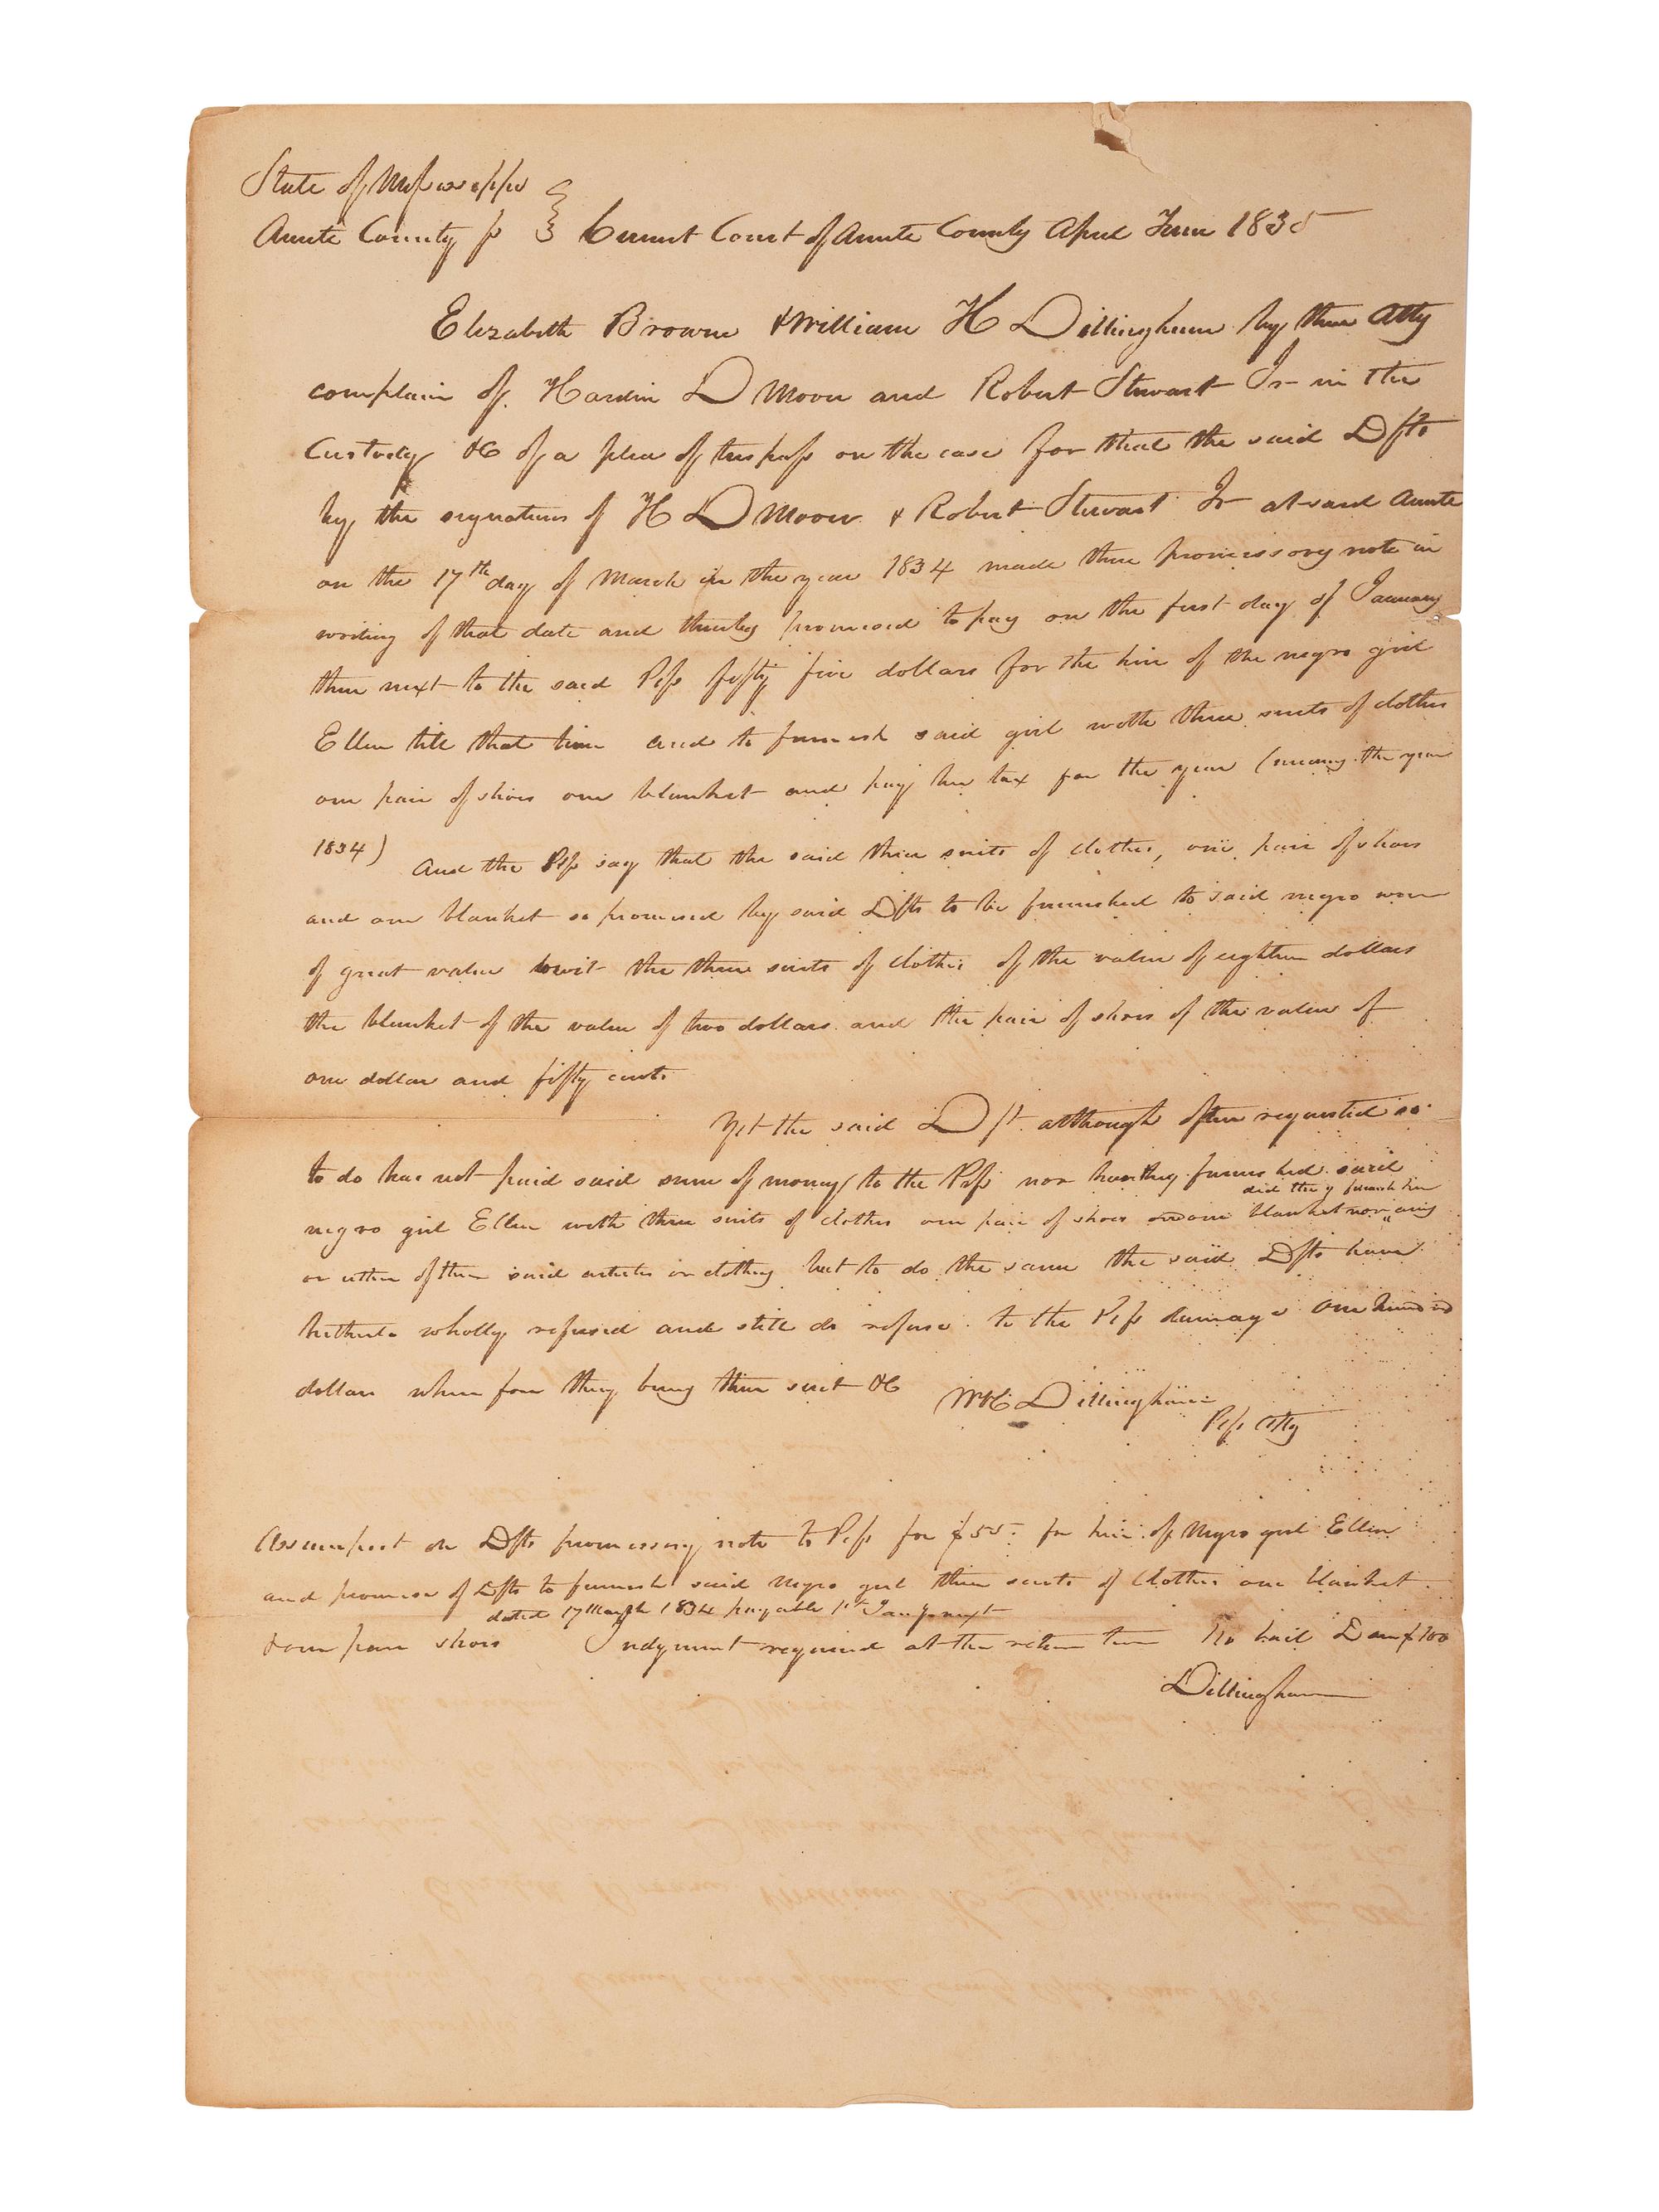 State of Mississippi
Amite County ss } Circuit Court of Amite County April Term 1835
Elizabeth Browne & William H Dillingham by their Atty
complain of Hardin D Moore and Robert Stewart Jr in the
Custody &c of a plea of trespass on the case for that the said Dfts
by the signatures of H D Moore & Robert Stewart Jr at said Amite
on the 17th day of March in the year 1834 made their promissory note in
writing of that date and thereby promised to pay on the first day of January
then next to the said Plfs fifty five dollars for the hire of the negro girl
Ellen till that time and to furnish said girl with three suits of clothes
one pair of shoes one blanket and pay her tax for the year (meaning the year
1834) And the Plfs say that the said three suits of clothes, one pair of shoes
and one blanket so promised by said Dfts to be furnished to said negro were
of great value towit the three suits of clothes of the value of eighteen dollars
the blanket of the value of two dollars and the pair of shoes of the value of
one dollar and fifty cents
Yet the said Dft although often requested so
to do has not paid said sum of money to the Plfs nor have they furnished said
did they furnish her
negro girl Ellen with three suits of clothes one pair of shoes one blanket nor any
or either of them said articles or clothing but to do the same the said Dfts have
hitherto wholly refused and still do refuse to the Plfs damage one hundred
dollars wherefore they bring their suit &c WH Dillingham
Plfs Atty
Assumpsit on Dfts promissory note to Plfs for $55. for hire of Negro girl Ellen
and promise of Dfts to furnish said Negro girl three suits of clothes one blanket
dated 17 March 1834 payable 1st Jany next
& one pair shoes Judgment required at the return term No bail Dam $100
Dillingham